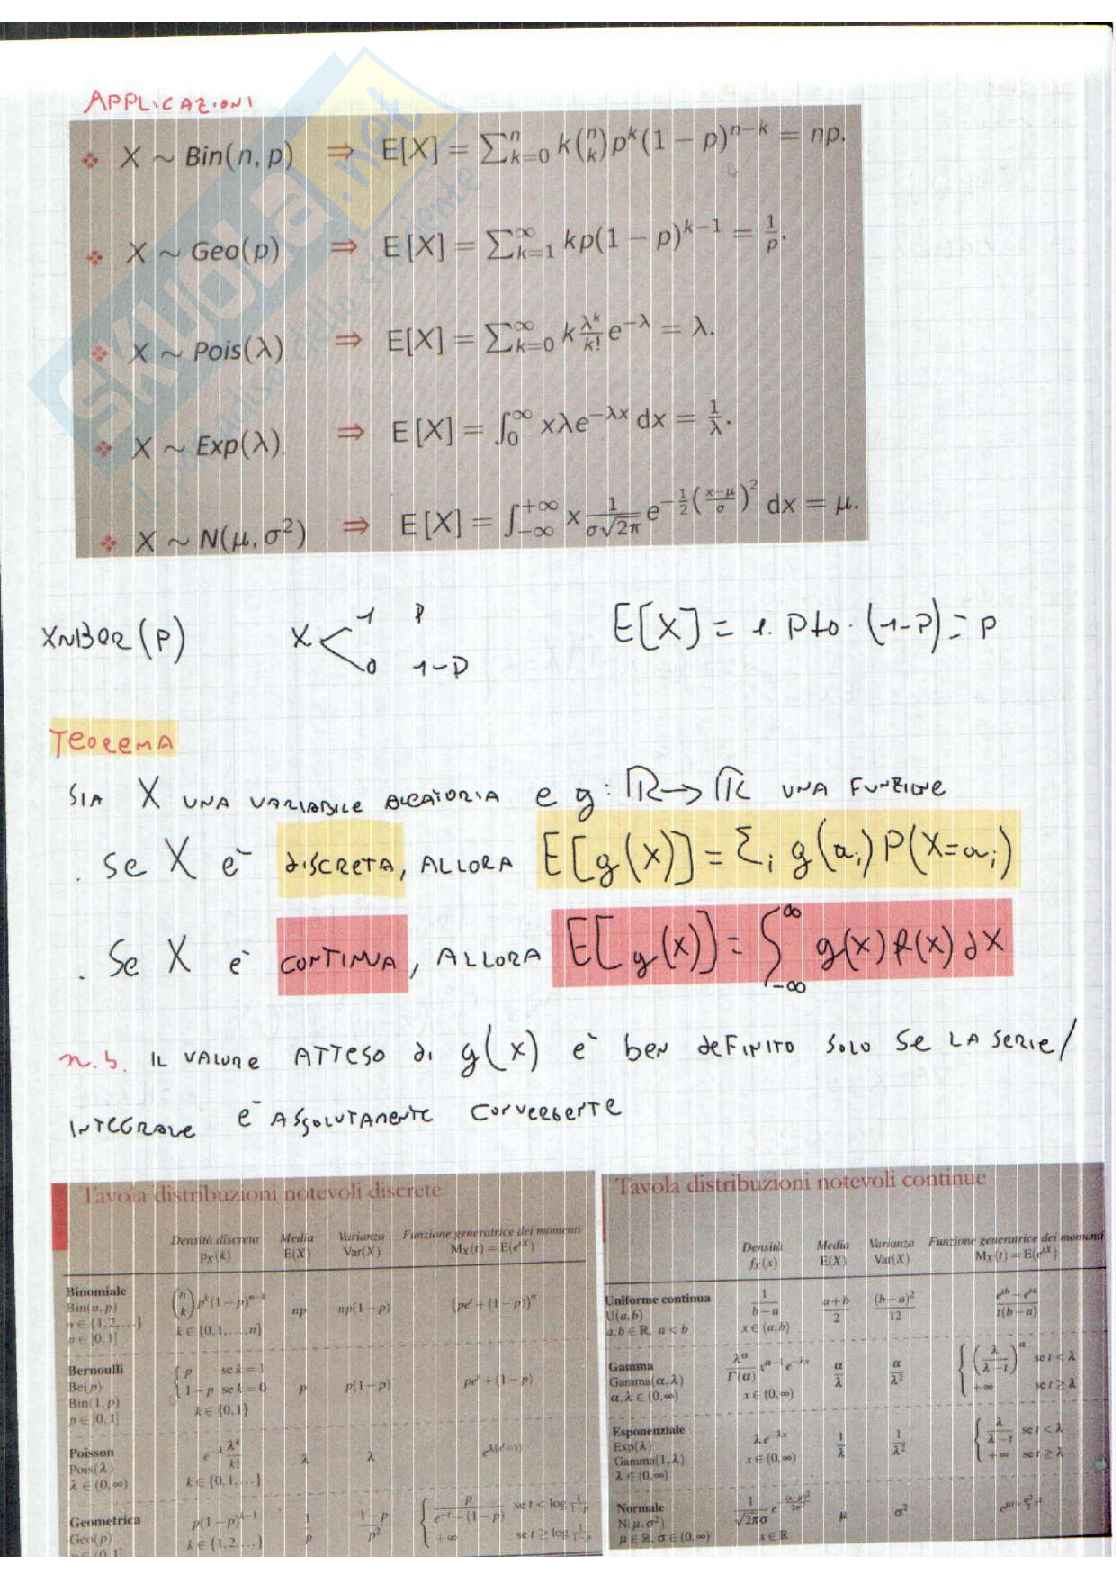 APPLICAZIONI
❖ X ~ Bin(n, p) ⇒ E[X] = ∑_{k=0}^{n} k (n k) p^k (1 − p)^{n−k} = np.
❖ X ~ Geo(p) ⇒ E[X] = ∑_{k=1}^{∞} kp(1 − p)^{k−1} = 1/p.
❖ X ~ Pois(λ) ⇒ E[X] = ∑_{k=0}^{∞} k λ^k/k! e^{−λ} = λ.
❖ X ~ Exp(λ) ⇒ E[X] = ∫_0^∞ xλe^{−λx} dx = 1/λ.
❖ X ~ N(μ, σ²) ⇒ E[X] = ∫_{−∞}^{+∞} x 1/(σ√2π) e^{−1/2((x−μ)/σ)²} dx = μ.
X~BER(P) X < 1 P E[X] = 1·P+0·(1-P) = P
0 1-P
TEOREMA
SIA X UNA VARIABILE ALEATORIA e g: ℝ→ℝ UNA FUNZIONE
. Se X è DISCRETA, ALLORA E[g(X)] = Σ_i g(a_i) P(X=a_i)
. Se X è CONTINUA, ALLORA E[g(X)] = ∫_{-∞}^{∞} g(x) f(x) dx
n.b. IL VALORE ATTESO di g(x) è ben deFINITO SOLO Se LA Serie/
INTEGRALE è ASSOLUTAMENTE CONVERGENTE
Tavola distribuzioni notevoli discrete
Densità discreta p_X(k) Media E(X) Varianza Var(X) Funzione generatrice dei momenti M_X(t) = E(e^{tX})
Binomiale
Bin(n, p) (n k) p^k(1−p)^{n−k} np np(1−p) (pe^t + (1−p))^n
n ∈ {1, 2, ...} k ∈ {0, 1, ..., n}
p ∈ [0, 1]
Bernoulli p se k = 1
Be(p) 1−p se k = 0 p p(1−p) pe^t + (1−p)
Bin(1, p) k ∈ {0, 1}
p ∈ [0, 1]
Poisson
Pois(λ) e^{−λ} λ^k/k! λ λ
λ ∈ (0, ∞) k ∈ {0, 1, ...}
Geometrica
Geo(p) p(1−p)^{k−1} 1/p (1−p)/p² p/(e^{−t} − (1−p)) se t < log 1/(1−p)
k ∈ {1, 2, ...} +∞ se t ≥ log 1/(1−p)
Tavola distribuzioni notevoli continue
Densità f_X(x) Media E(X) Varianza Var(X) Funzione generatrice dei momenti M_X(t) = E(e^{tX})
Uniforme continua
U(a, b) 1/(b−a) (a+b)/2 (b−a)²/12 (e^{tb} − e^{ta})/(t(b−a))
a, b ∈ ℝ, a < b x ∈ (a, b)
Gamma
Gamma(α, λ) λ^α/Γ(α) x^{α−1} e^{−λx} α/λ α/λ² (λ/(λ−t))^α se t < λ
α, λ ∈ (0, ∞) x ∈ (0, ∞) +∞ se t ≥ λ
Esponenziale
Exp(λ) λe^{−λx} 1/λ 1/λ² λ/(λ−t) se t < λ
Gamma(1, λ) x ∈ (0, ∞) +∞ se t ≥ λ
λ ∈ (0, ∞)
Normale
N(μ, σ²) 1/(√2πσ) e^{−(x−μ)²/2σ²} μ σ²
μ ∈ ℝ, σ ∈ (0, ∞) x ∈ ℝ
SKUOLA.net